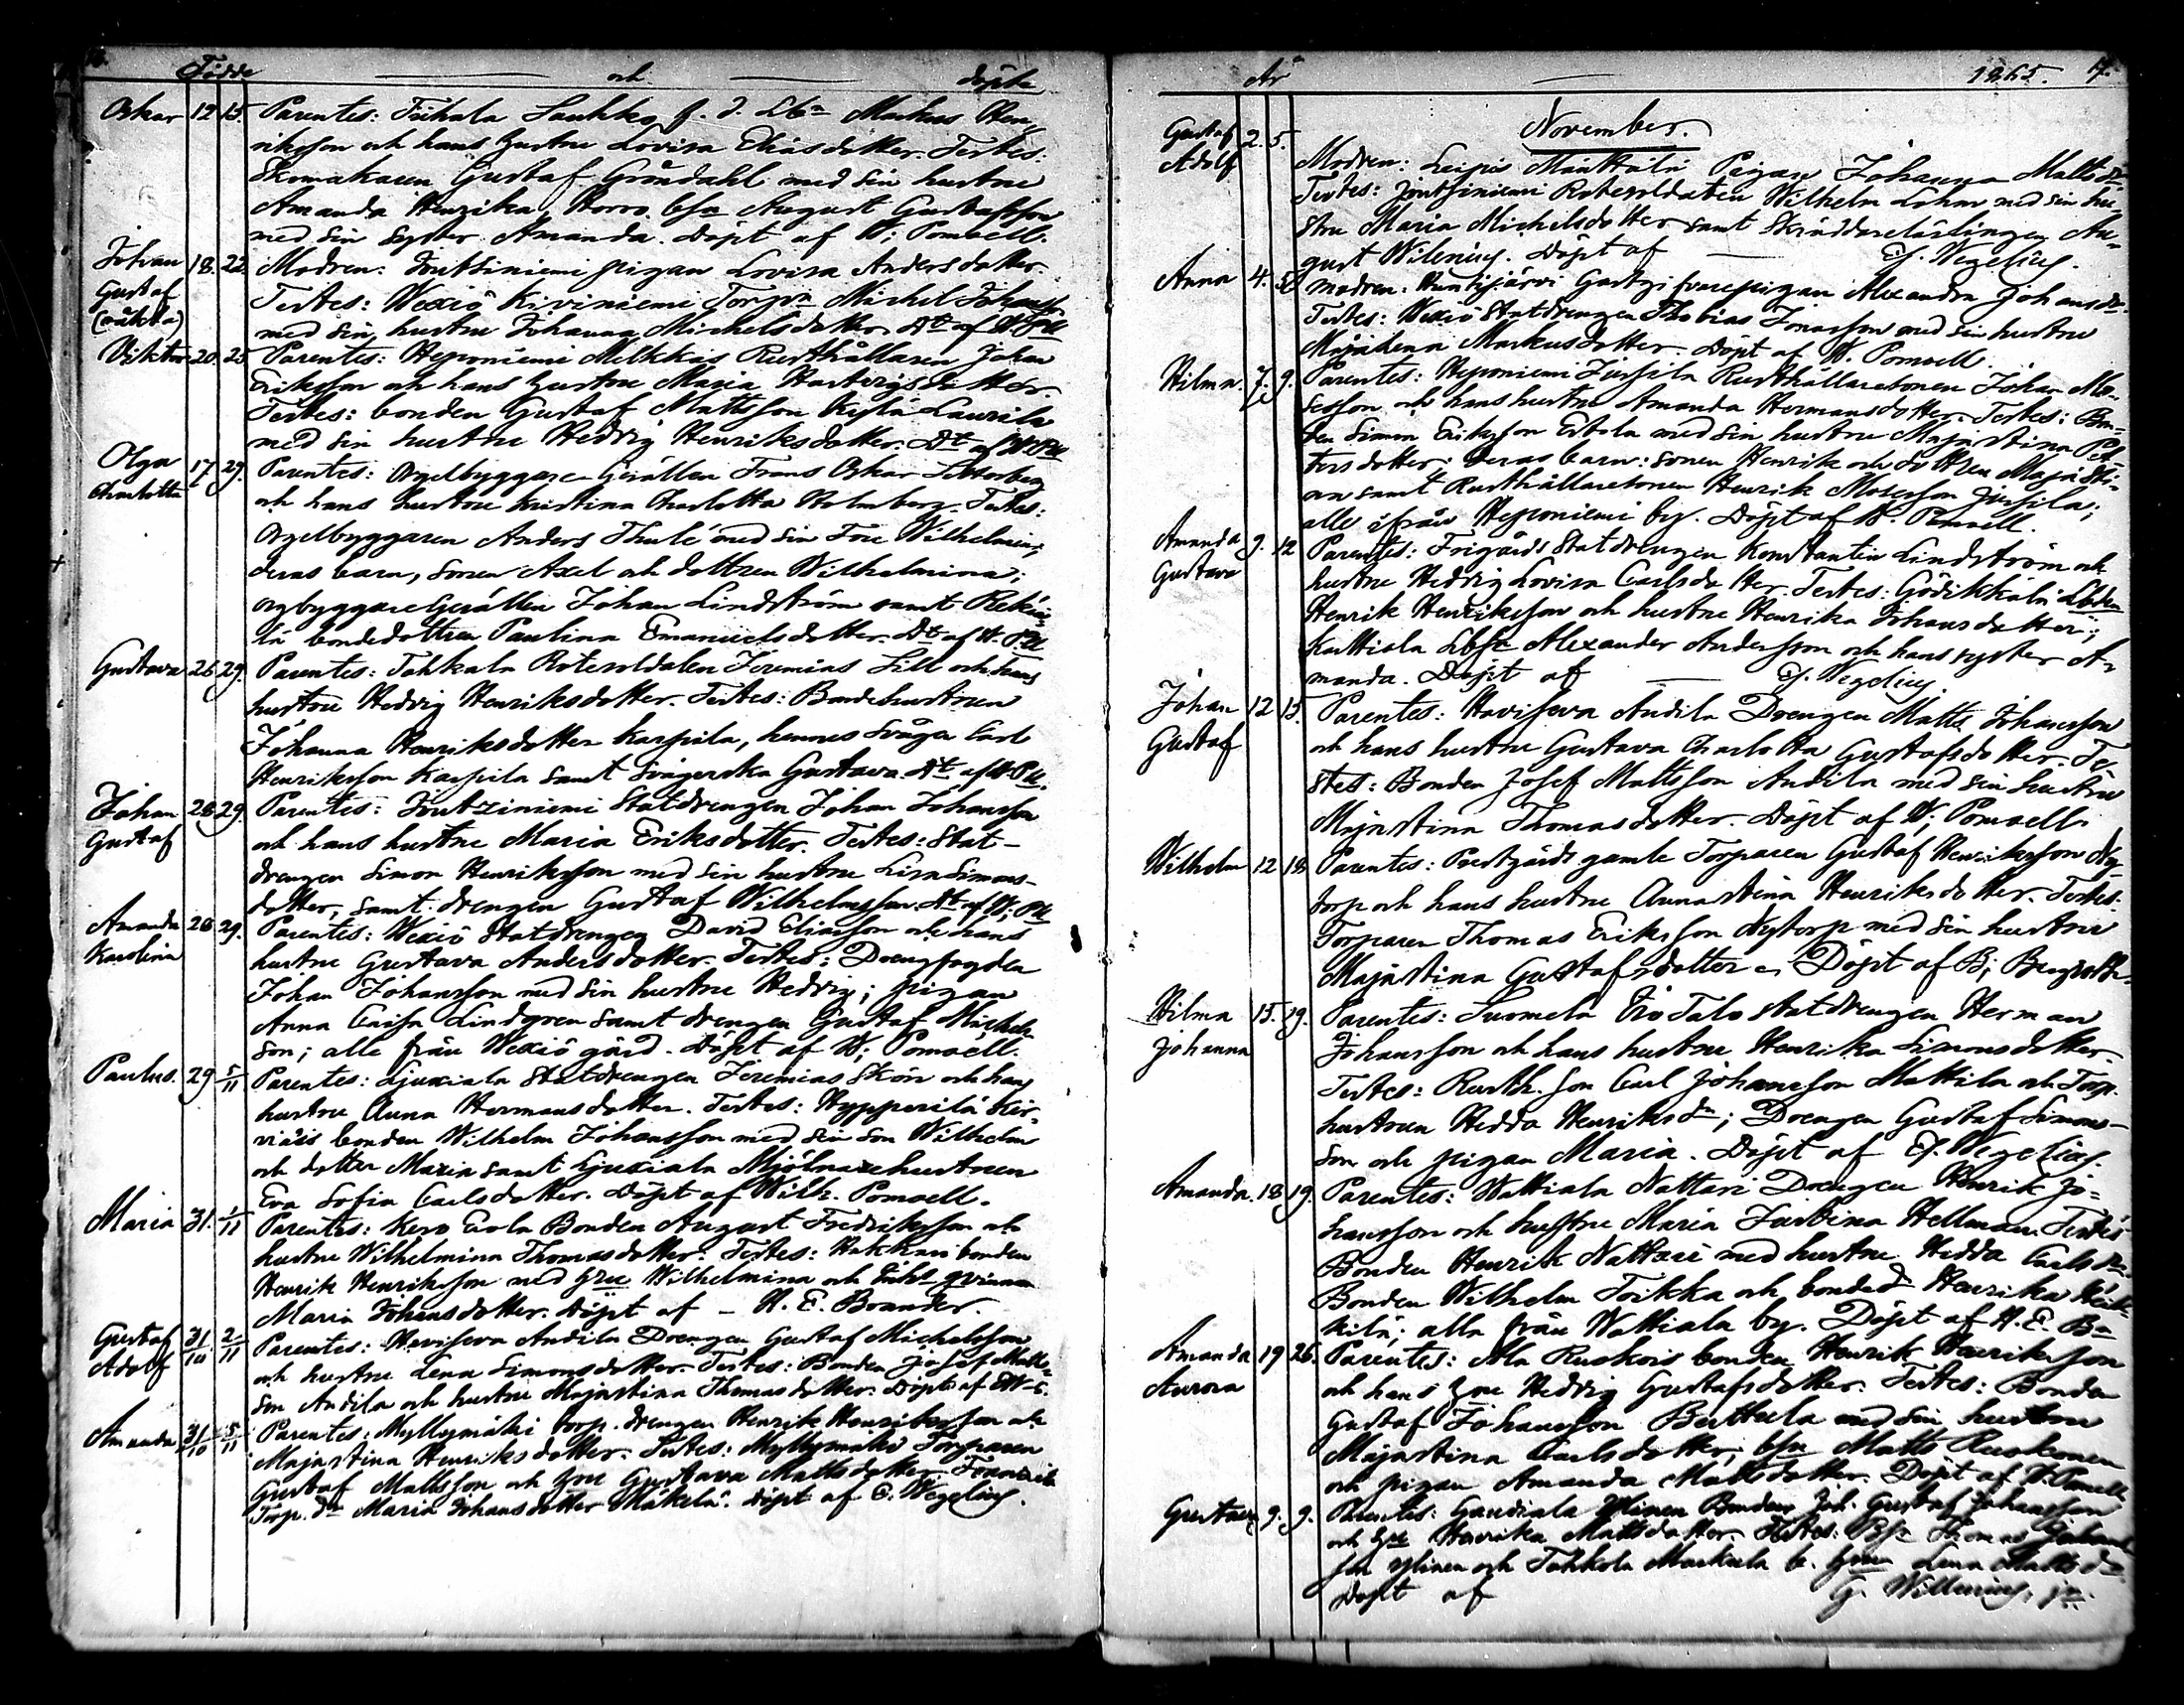 Födde och döpte
Oskar 12 15. Parentes: Tiihala Laukko f. d. Lbn Markus Hen-
riksson och hans hustru Lovisa Eliasdotter. Testes:
Skomakaren Gustaf Gröndahl med sin hustru
Amanda Henrika, Horro bsn August Gustafsson
med sin syster Amanda. Döpt af W; Pomoell.
Johan 18. 22. Modren: Jontziniemi pigan Lovisa Andersdotter.
Gustaf Testes: Wexiö Kiviniemi Torpn Michel Johanss.
(oäkta) med sin hustru Johanna Michelsdotter. Dt af W. Pll
Viktor 20. 25. Parentes: Heponiemi Melkkas Rusthållaren Johan
Eriksson och hans hustru Maria Hartvigsdotter.
Testes: bonden Gustaf Mattsson Kylä Laurila
med sin hustru Hedvig Henriksdotter. Dt af W Pll
Olga 17 29. Parentes: Orgelbyggare Gesällen Frans Oskar
Charlotta och hans hustru Kristina Charlotta Holmberg. Testes:
Orgelbyggaren Anders Thulé med sin Fru Wilhelmina;
deras barn, sonen Axel och dottren Wilhelmina;
orgbyggaregesällen Johan Lindström samt
bondedottren Paulina Emanuelsdotter. Dt af W. Pll
Gustava 26 29. Parentes: Tahkala Rotesoldaten Jeremias Sill och hans
hustru Hedvig Henriksdotter. Testes: Bondehustrun
Johanna Henriksdotter Karpila, hennes svåger Carl
Henriksson Karpila samt svägerska Gustava. Dt af W. Pll.
Johan 28 29. Parentes: Jontziniemi Statdrengen Johan Johansson
Gustaf och hans hustru Maria Eriksdotter. Testes: Stat-
drengen Simon Henriksson med sin hustru Lisa Simons-
dotter, samt drengen Gustaf Wilhelmsson. Dt af W; Pll
Amanda 28 29. Parentes: Wexiö Statdrengen David Eliasson och hans
Karolina hustru Gustava Andersdotter. Testes: Drengfogden
Johan Johansson med sin hustru Hedvig; pigan
Anna Caisa Lindgren samt drengen Gustaf Michels-
son; alle från Wexiö gård. Döpt af W; Pomoell.
Paulus. 29 5/11 Parentes: Ljuxiala Statdrengen Jeremias Skön och hans
hustru Anna Hermansdotter. Testes: Hypperilä
bonden Wilhelm Johansson med sin son Wilhelm
och dotter Maria samt Ljuxiala Mjölnarehustrun
Eva Sofia Carlsdotter. Döpt af Wilh. Pomoell.
Maria 31. 1/11 Parentes: Kero Erola Bonden August Fredriksson och
hustru Wilhelmina Thomasdotter. Testes: Hakkari bonden
Henrik Henriksson med hru Wilhelmina och qvinnan
Maria Johansdotter. Döpt af – H. E. Brander.
Gustaf 31/10 2/11 Parentes: Haviseva Andila Drengen Gustaf Michelsson
Adolf och hustru Lena Simonsdotter. Testes: Bonden Josef Matts-
son Andila och hustru Majastina Thomasdotter. Döpt af
Amanda 31/10 5/11 Parentes: Myllymäki torp. drengen Henrik Henriksson och
Majastina Henriksdotter. Testes: Myllymäki Torparen
Gustaf Mattsson och hru Gustava Mattsdotter
Torp. dr Maria Johansdotter Mäkelä. Döpt af E. Wegelius.
År 1865. 17.
November.
Gustaf 2. 5. Modren: Leipis Mänttälä Pigan Johanna Mattsdr
Adolf Testes: Jontsiniemi Rotesoldaten Wilhelm Lohm med sin hu-
stru Maria Michelsdotter samt Skräddarelärlingen Au-
gust Wilenius. Döpt af — Ej. Wegelius.
Anna 4. 5. Modren: Huntijärvi Gästgifvarepigan Alexandra Johansdr.
Testes: Wexiö Statdrengen Thobias Jonasson med sin hustru
Majalena Markusdotter. Döpt af W. Pomoell.
Hilma. 7. 9. Parentes: Heponiemi Jussila Rusthållaresonen Johan Mo-
sesson och hans hustru Amanda Hermansdotter. Testes: Bon-
den Simon Eriksson Erkola med sin hustru Majastina Pet-
tersdotter; deras barn: sonen Henrik och dottren Majasti-
na samt Rusthållaresonen Henrik Mosesson Jussila;
alle ifrån Heponiemi by. Döpt af W. Pomoell.
Amanda 9. 12 Parentes: Frigårds Statdrengen Konstantin Lindström och
Gustava hustru Hedvig Lovisa Carlsdotter. Testes: Lbden
Henrik Henriksson och hustru Henrika Johansdotter;
Kuttiala Lbsn Alexander Andersson och hans syster A-
manda. Döpt af — Ej. Wegelius.
Johan 12 15. Parentes: Haviseva Andila Drengen Matts Johansson
Gustaf och hans hustru Gustava Charlotta Gustafsdotter. Te-
stes: Bonden Josef Mattsson Andila med sin hustru
Majastina Thomasdotter. Döpt af W; Pomoell.
Wilhelm 12 18 Parentes: Prestgårds gamle Torparen Gustaf Henriksson Ny-
torp och hans hustru Annastina Henriksdotter. Testes:
Torparen Thomas Eriksson Nytorp med sin hustru
Majastina Gustafsdotter. Döpt af B;
Hilma 15. 19. Parentes: Suomela Iso Talo statdrengen Herman
Johanna Johansson och hans hustru Henrika Simonsdotter.
Testes: Rusth. son Carl Johansson Mattila och Torp.
hustrun Hedda Henriksdr; Drengen Gustaf Simons-
son och pigan Maria. Döpt af Ej. Wegelius.
Amanda. 18 19. Parentes: Wattiala Nattari Drengen Henrik Jo-
hansson och hustru Maria Justina Hellman. Testes:
Bonden Henrik Nattari med hustru Hedda Carlsdr.
Bonden Wilhelm Toikka och bonded Henrika Heik-
kilä; alla från Wattiala by. Döpt af H. E. Br
Amanda 19 26. Parentes: Ala Ruskois bonden Henrik Henriksson
Aurora och hans hru Hedvig Gustafsdotter. Testes: Bonden
Gustaf Johansson Berttula med sin hustru
Majastina Carlsdotter, bsn Matts Ruskonen
och pigan Amanda Mattsdotter. Döpt af W. Pomoell
Gustava 9. 9. Parentes: Gaudiala Ylinen Bonden Joh. Gustaf Johansson
och hru Henrika Mattsdotter. Testes: Thomas Johans-
son Ylinen och Tahkola Markula b. hru Lena Mattsdr.
Döpt af G. Willenius, jr.